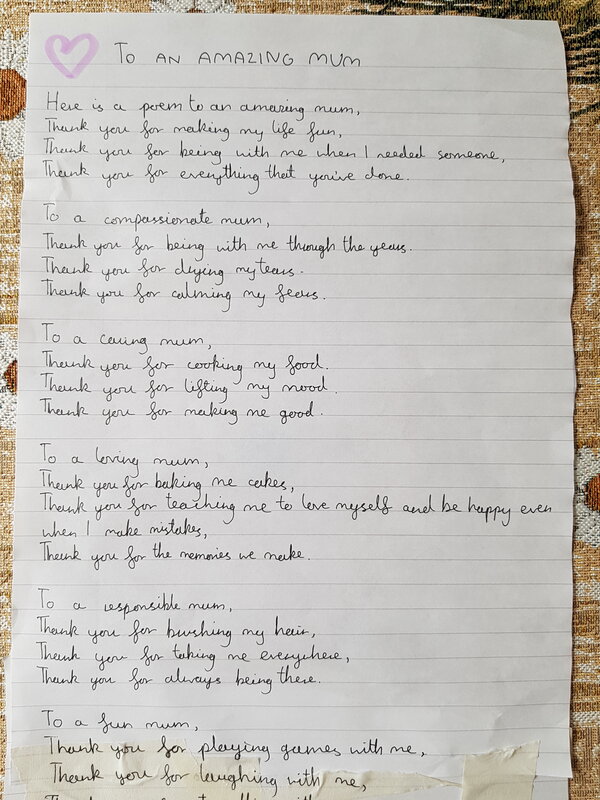 TO AN AMAZING MUM
Here is a poem to an amazing mum,
Thank you for making my life fun,
Thank you for being with me when I needed someone,
Thank you for everything that you've done.
To a compassionate mum,
Thank you for being with me through the years.
Thank you for drying my tears.
Thank you for calming my fears.
To a caring mum,
Thank you for cooking my food.
Thank you for lifting my mood.
Thank you for making me good.
To a loving mum,
Thank you for baking me cakes,
Thank you for teaching me to love myself and be happy even
when I make mistakes,
Thank you for the memories we make.
To a responsible mum,
Thank you for brushing my hair,
Thank you for taking me everywhere,
Thank you for always being there.
To a fun mum,
Thank you for playing games with me,
Thank you for laughing with me,